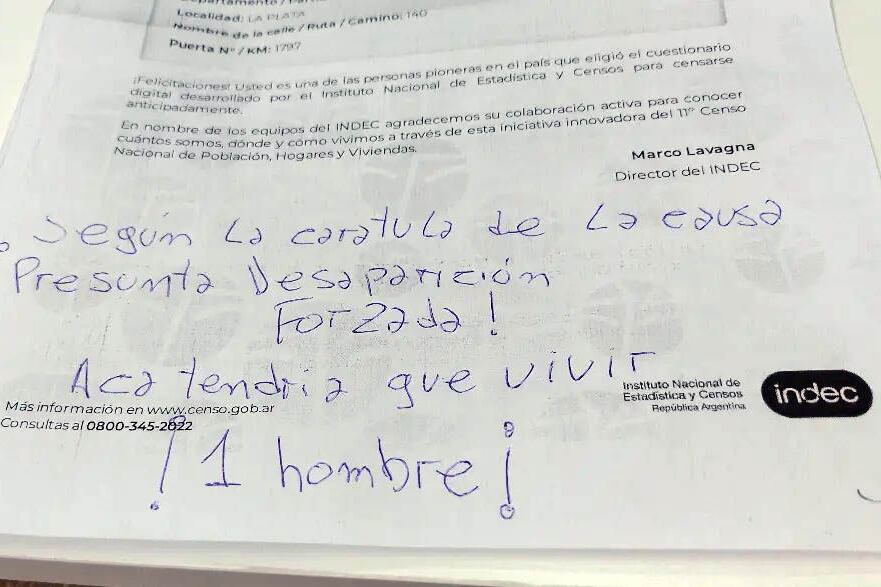 Localidad: LA PLATA
Nombre de la calle / Ruta / Camino: 140
Puerta Nº / KM: 1797
¡Felicitaciones! Usted es una de las personas pioneras en el país que eligió el cuestionario
digital desarrollado por el Instituto Nacional de Estadística y Censos para censarse
anticipadamente.
En nombre de los equipos del INDEC agradecemos su colaboración activa para conocer
cuántos somos, dónde y cómo vivimos a través de esta iniciativa innovadora del 11º Censo
Nacional de Población, Hogares y Viviendas.
Marco Lavagna
Director del INDEC
Según La caratula de La causa
Presunta Desaparición
Forzada!
Aca tendria que vivir
Instituto Nacional de
Estadística y Censos
República Argentina
indec
Más información en www.censo.gob.ar
Consultas al 0800-345-2822
¡1 hombre!